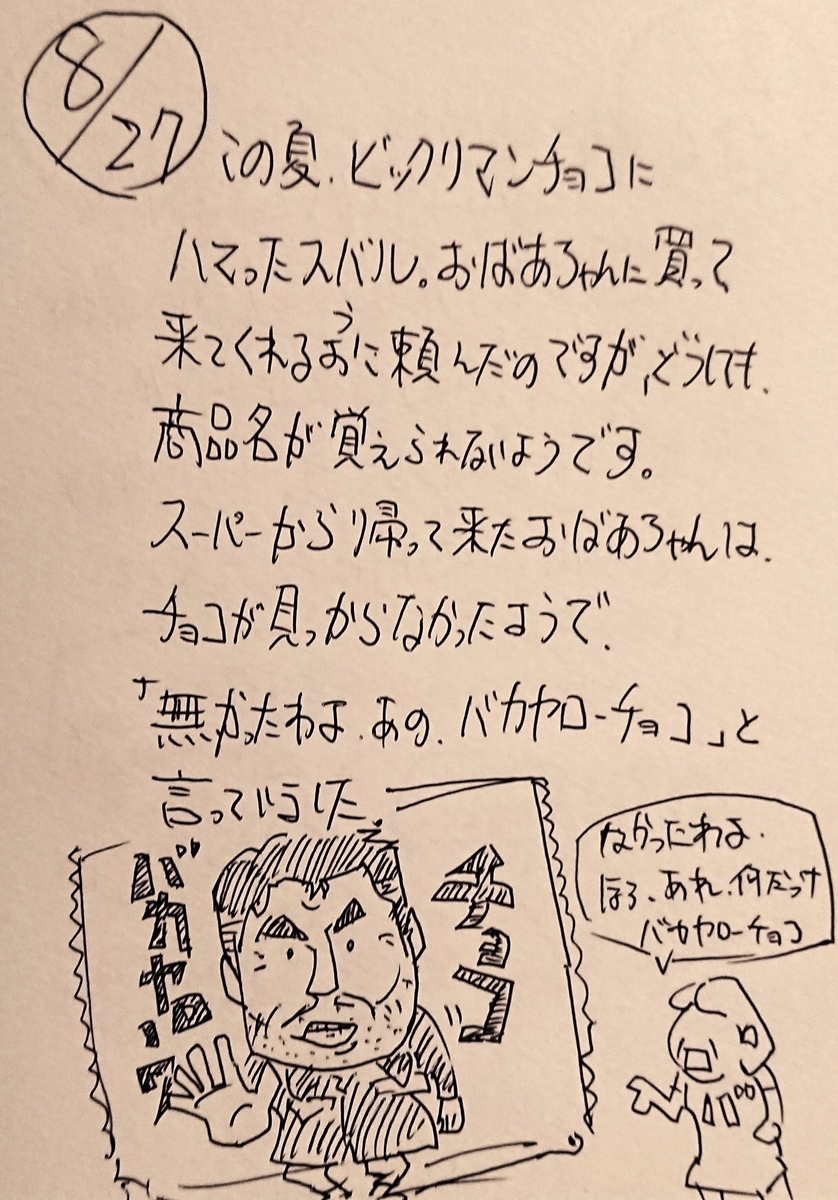 8/27
この夏、ビックリマンチョコに
ハマったスバル。おばあちゃんに買って
来てくれるように頼んだのですが、どうしても、
商品名が覚えられないようです。
スーパーから帰って来たおばあちゃんは、
チョコが見つからなかったようで、
「無かったわよ、あの、バカヤローチョコ」と
言っていました。
バカヤロー
チョコ
なかったわよ、
ほら、あれ、何だっけ
バカヤローチョコ